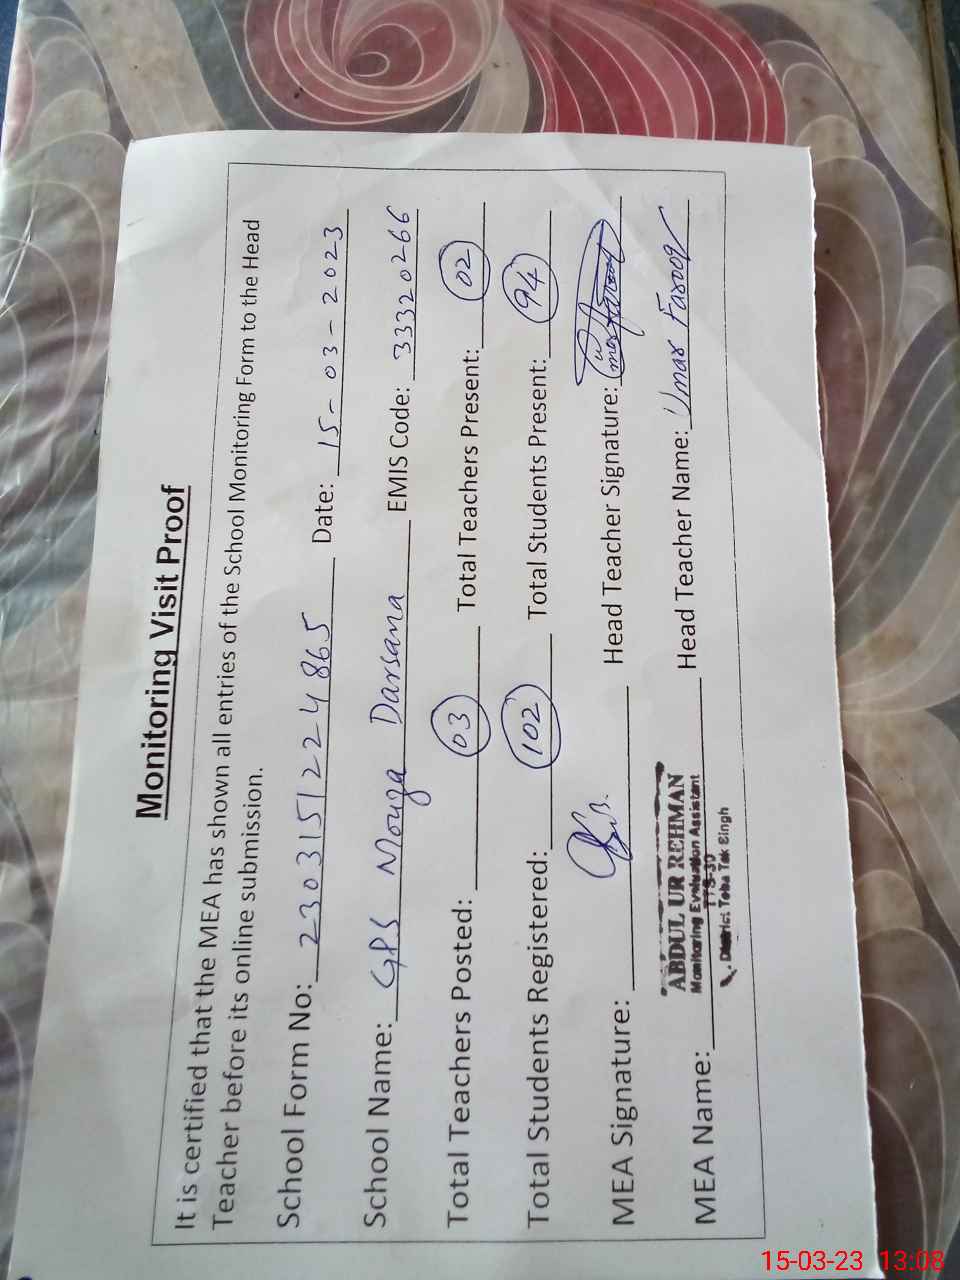 Monitoring Visit Proof
It is certified that the MEA has shown all entries of the School Monitoring Form to the Head
Teacher before its online submission.
School Form No: 2303151224865 Date: 15-03-2023
School Name: GPS Mouza Darsana EMIS Code: 33320266
Total Teachers Posted: 03 Total Teachers Present: 02
Total Students Registered: 102 Total Students Present: 94
MEA Signature: Head Teacher Signature: Umar Farooq
MEA Name: Head Teacher Name: Umar Farooq
ABDUL UR REHMAN
Monitoring Evaluation Assistant
TTS-30
District Toba Tek Singh
15-03-23 13:08